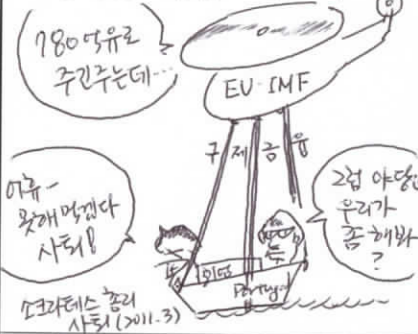 780억유로
주긴주는데...
EU-IMF
구제금융
어휴-
못해먹겠다
사퇴!
그럼 야당인
우리가
좀 해봐
?
Portugal
소크라테스 총리
사퇴(2011.3)